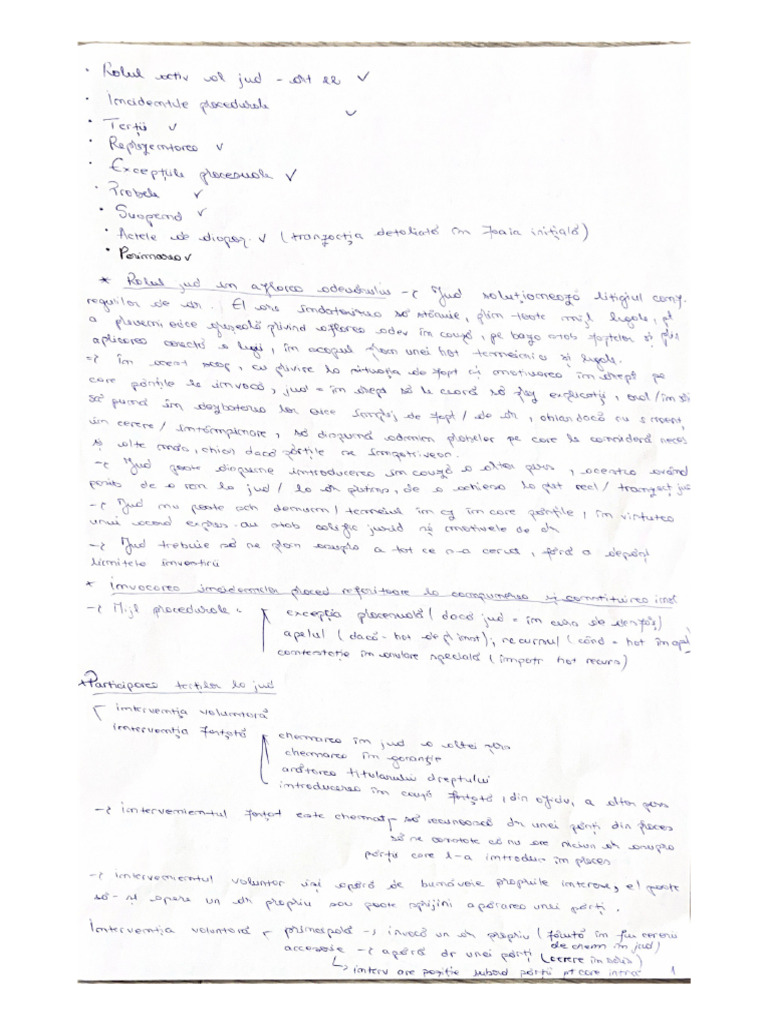 • Rolul activ al jud - art 22 ✓
• Incidentele procedurale ✓
• Terții ✓
• Reprezentarea ✓
• Excepțiile procesuale ✓
• Probele ✓
• Suspend ✓
• Actele de dispoz. ✓ (tranzacția detaliată în foaia inițială)
• Perimarea ✓
* Rolul jud în aflarea adevărului → Jud soluționează litigiul conf.
regulilor de dr. El are îndatorirea să stăruie, prin toate mijl legale, pt
a preveni orice greșeală privind aflarea adev în cauză, pe baza stab faptelor și prin
aplicarea corectă a legii, în scopul pron unei hot temeinice și legale.
=> În acest scop, cu privire la situația de fapt și motivarea în drept pe
care părțile le invocă, jud = în drept să le ceară să prez explicații, oral / în scris
să pună în dezbaterea lor orice împrej de fapt / de dr, chiar dacă nu s ment
în cerere / întâmpinare, să dispună admin probelor pe care le consideră neces
și alte măs, chiar dacă părțile se împotrivesc.
→ Jud poate dispune introducerea în cauză a altor pers, acestea având
posib de a ren la jud / la dr pretins, de a achiesa la pret recl / tranzacț jud
→ Jud nu poate sch denum / temeiul în cz în care părțile, în virtutea
unui acord expres au stab calific jurid și motivele de dr
→ Jud trebuie să se pron asupra a tot ce s-a cerut, fără a depăși
limitele învestirii
* Invocarea incidentelor proced referitoare la compunerea și constituirea inst
→ Mijl procedurale: excepția procesuală (dacă jud = în curs de desfăș)
apelul (dacă - hot de pr inst); recursul (când = hot în apel
contestație în anulare specială (împotr hot recurs)
* Participarea terților la jud
intervenția voluntară
intervenția forțată chemarea în jud a altei pers
chemarea în garanție
arătarea titularului dreptului
introducerea în cauză forțată, din oficiu, a altor pers
→ intervenientul forțat este chemat să recunoască dr unei părți din proces
să se constate că nu are niciun dr asupra
părții care l-a introdus în proces
→ intervenientul voluntar își apără de bunăvoie propriile interese, el poate
să-și apere un dr propriu sau poate sprijini apărarea unei părți.
Intervenția voluntară principală → invocă un dr propriu (făcută în fm cererii
de chem în jud)
accesorie → apără dr unei părți (cerere în scris)
↳ interv are poziție subord părții pt care intră 1